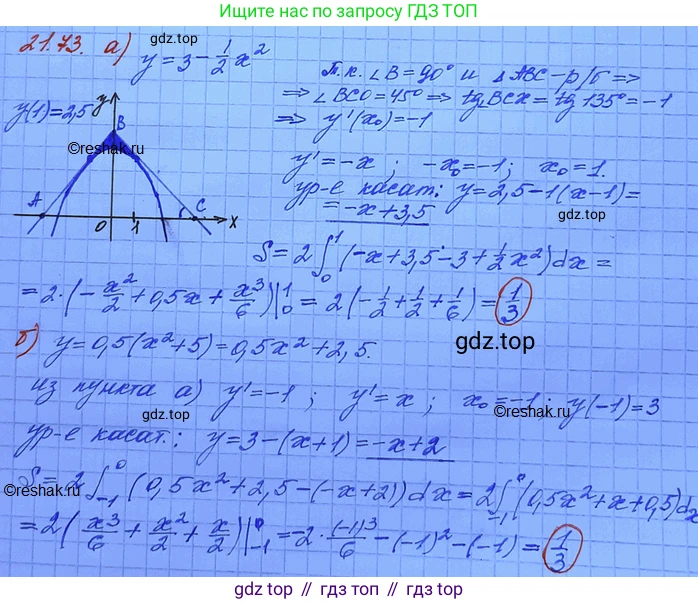 Ищите нас по запросу ГДЗ ТОП
21.73. а) y = 3 - 1/2 x²
Т.к. ∠B = 90° и △ABC - р/б =>
=> ∠BCO = 45° => tg∠BCX = tg 135° = -1
=> y'(x₀) = -1
y(1) = 2,5
y
B
©reshak.ru
A
O
1
C
x
y' = -x ; -x₀ = -1 ; x₀ = 1.
ур-е касат: y = 2,5 - 1(x - 1) =
= -x + 3,5
gdz.top
S = 2 ∫₀¹ (-x + 3,5 - 3 + 1/2 x²) dx =
= 2·(-x²/2 + 0,5x + x³/6)|₀¹ = 2(-1/2 + 1/2 + 1/6) = 1/3
gdz.top
б) y = 0,5(x² + 5) = 0,5x² + 2,5.
gdz.top
из пункта а) y' = -1 ; y' = x ; x₀ = -1 ; y(-1) = 3
gdz.top
©reshak.ru
ур-е касат: y = 3 - (x + 1) = -x + 2
S = 2 ∫₋₁⁰ (0,5x² + 2,5 - (-x + 2)) dx = 2 ∫₋₁⁰ (0,5x² + x + 0,5) dx
©reshak.ru
gdz.top
= 2(x³/6 + x²/2 + x/2)|₋₁⁰ = -2·(-1)³/6 - (-1)² - (-1) = 1/3
gdz top // гдз топ // gdz.top // гдз.топ